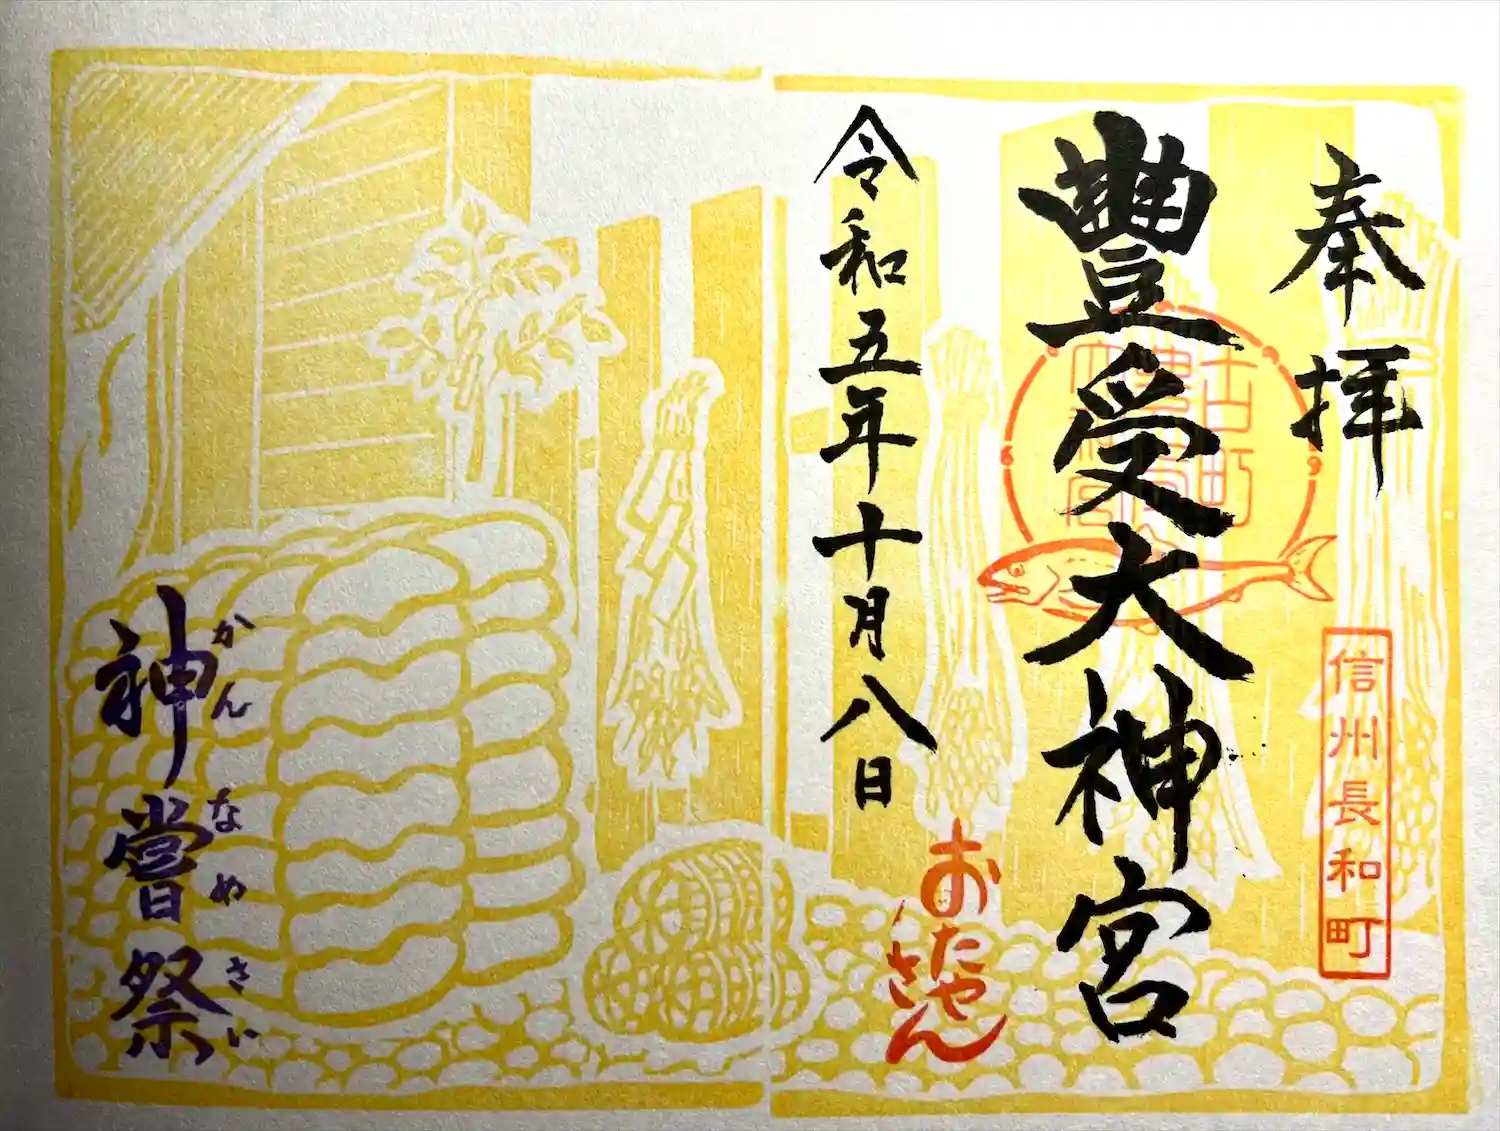 奉拝
信州長和町
豊受大神宮
古町
令和五年十月八日
おたや
さん
神嘗祭
かんなめさい